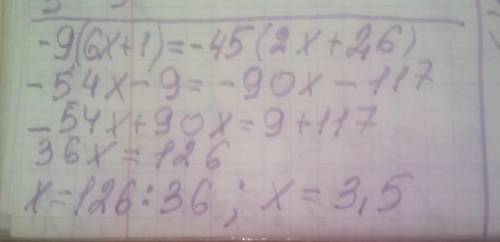 -9(6x+1)=-45(2x+2,6)
-54x-9=-90x-117
-54x+90x=9+117
36x=126
x=126:36; x=3,5